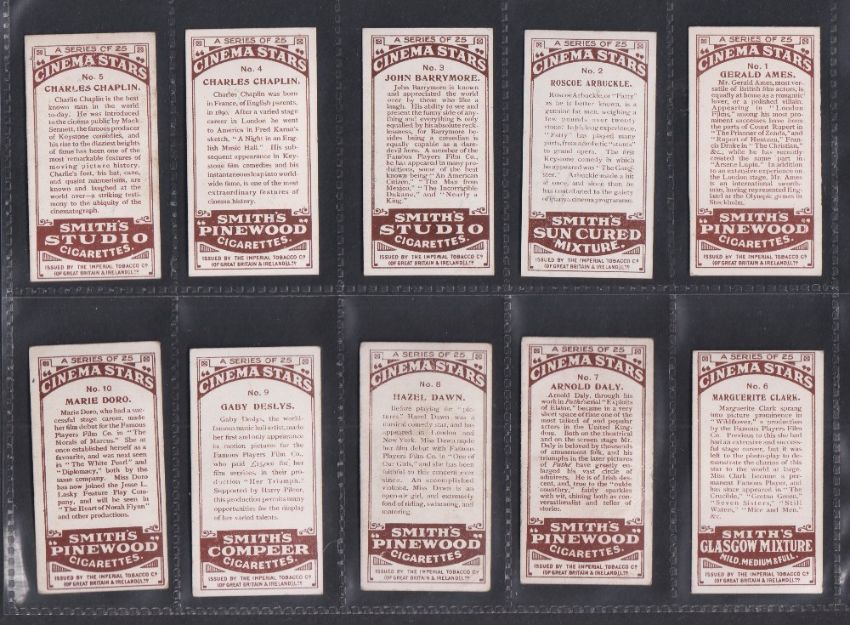 A SERIES OF 25
"CINEMA STARS"
No. 5
CHARLES CHAPLIN.
Charlie Chaplin is the best
known man in the world
to-day. He was introduced
to the cinema public by Mack
Sennett, the famous producer
of Keystone comedies, and
his rise to the dizziest heights
of fame has been one of the
most remarkable features of
moving picture history.
Charlie's feet, his hat, cane,
and quaint mannerisms, are
known and laughed at the
world over—a striking testi-
mony to the ubiquity of the
cinematograph.
SMITH'S
STUDIO
CIGARETTES.
ISSUED BY THE IMPERIAL TOBACCO CO
(OF GREAT BRITAIN & IRELAND) LTD
A SERIES OF 25
"CINEMA STARS"
No. 4
CHARLES CHAPLIN.
Charles Chaplin was born
in France, of English parents,
in 1890. After a varied stage
career in London he went
to America in Fred Karno's
sketch, "A Night in an Eng-
lish Music Hall." His sub-
sequent appearance in Key-
stone film comedies and his
instantaneous leap into world
wide fame, is one of the most
extraordinary features of
cinema history.
SMITH'S
"PINEWOOD"
CIGARETTES.
ISSUED BY THE IMPERIAL TOBACCO CO
(OF GREAT BRITAIN & IRELAND) LTD
A SERIES OF 25
"CINEMA STARS"
No. 3
JOHN BARRYMORE.
John Barrymore is known
and appreciated the world
over by those who like a
laugh. His ability to see and
present the funny side of any-
thing and everything is only
equalled by his absolute reck-
lessness, for Barrymore be-
sides being a comedian is
equally capable as a dare-
devil hero. A member of the
Famous Players Film Co.,
he has appeared in many pro-
ductions, some of the best
known being "An American
Citizen," "The Man from
Mexico," "The Incorrigible
Dukane," and "Nearly a
King."
SMITH'S
STUDIO
CIGARETTES.
ISSUED BY THE IMPERIAL TOBACCO CO
(OF GREAT BRITAIN & IRELAND) LTD
A SERIES OF 25
"CINEMA STARS"
No. 2
ROSCOE ARBUCKLE.
Roscoe Arbuckle, or "Fatty"
as he is better known, is a
genuine fat man, weighing a
few pounds over twenty
stone. In his long experience,
"Fatty" has played many
parts, from aerobatic "stunts"
to grand opera. The first
Keystone comedy in which
he appeared was "The Gang-
ster." Arbuckle made a hit
at once, and since then he
has contributed to the gaiety
of many a cinema programme.
SMITH'S
SUN CURED
MIXTURE.
ISSUED BY THE IMPERIAL TOBACCO CO
(OF GREAT BRITAIN & IRELAND) LTD
A SERIES OF 25
"CINEMA STARS"
No. 1
GERALD AMES.
Mr. Gerald Ames, most ver-
satile of British film actors, is
equally at home as a romantic
lover, or a polished villain.
Appearing in "London
Films," among his most
prominent successes have been
the parts of Count Rupert in
"The Prisoner of Zenda," and
"Rupert of Hentzau," Fran-
cis Drake in "The Christian,"
&c., while he has recently
created the name part in
"Arsene Lupin." In addition
to an extensive experience on
the London stage, Mr. Ames
is an international swords-
man, having represented Eng-
land at the Olympic games in
Stockholm.
SMITH'S
"PINEWOOD"
CIGARETTES.
ISSUED BY THE IMPERIAL TOBACCO CO
(OF GREAT BRITAIN & IRELAND) LTD
A SERIES OF 25
"CINEMA STARS"
No. 10
MARIE DORO.
Marie Doro, who had a suc-
cessful stage career, made
her film debut for the Famous
Players Film Co. in "The
Morals of Marcus." She at
once established herself as a
favourite, and was next seen
in "The White Pearl" and
"Diplomacy," both by the
same company. Miss Doro
has now joined the Jesse L.
Lasky Feature Play Com-
pany, and will be seen in
"The Heart of Norah Flynn"
and other productions.
SMITH'S
"PINEWOOD"
CIGARETTES.
ISSUED BY THE IMPERIAL TOBACCO CO
(OF GREAT BRITAIN & IRELAND) LTD
A SERIES OF 25
"CINEMA STARS"
No. 9
GABY DESLYS.
Gaby Deslys, the world-
famous music hall artist, made
her first and only appearance
in motion pictures for the
Famous Players Film Co.,
who paid for
her film services, in their pro-
duction "Her Triumph."
Supported by Harry Pilcer,
this production permits many
opportunities for the display
of her varied talents.
SMITH'S
COMPEER
CIGARETTES
ISSUED BY THE IMPERIAL TOBACCO CO
(OF GREAT BRITAIN & IRELAND) LTD
A SERIES OF 25
"CINEMA STARS"
No. 8
HAZEL DAWN.
Before playing for "pic-
tures" Hazel Dawn was a
musical comedy star, and has
appeared in London and
New York. Miss Dawn made
her film debut with Famous
Players Film Co. in "One of
Our Girls," and she has been
faithful to this concern ever
since. An accomplished
violinist, Miss Dawn is an
open-air girl, and extremely
fond of riding, swimming, and
motoring.
SMITH'S
"PINEWOOD"
CIGARETTES.
ISSUED BY THE IMPERIAL TOBACCO CO
(OF GREAT BRITAIN & IRELAND) LTD
A SERIES OF 25
"CINEMA STARS"
No. 7
ARNOLD DALY.
Arnold Daly, through his
work in Pathé serial "Exploits
of Elaine," became in a very
short space of time one of the
most talked of and popular
actors in the United King-
dom. Both on the theatrical
and on the screen stage Mr.
Daly is beloved by thousands
of amusement folk, and his
initials in the later pictures
of Pathé have greatly en-
larged his vast circle of
admirers. He is of Irish des-
cent, and, true to the "oulde
counthry," fairly sparkles
with wit, shining both as con-
versationalist and teller of
stories.
SMITH'S
"PINEWOOD"
CIGARETTES.
ISSUED BY THE IMPERIAL TOBACCO CO
(OF GREAT BRITAIN & IRELAND) LTD
A SERIES OF 25
"CINEMA STARS"
No. 6
MARGUERITE CLARK.
Marguerite Clark sprang
into picture prominence in
"Wildflower," a production
by the Famous Players Film Co.
Previous to this she had
had an extensive and success-
ful stage career, but it was
left to the photo-play to de-
monstrate the charms of this
star to the world at large.
Miss Clark became a per-
manent Famous Player, and
has since appeared in "The
Crucible," "Gretna Green,"
"Seven Sisters," "Still
Waters," "Mice and Men,"
&c.
SMITH'S
GLASGOW MIXTURE
MILD, MEDIUM & FULL.
ISSUED BY THE IMPERIAL TOBACCO CO
(OF GREAT BRITAIN & IRELAND) LTD